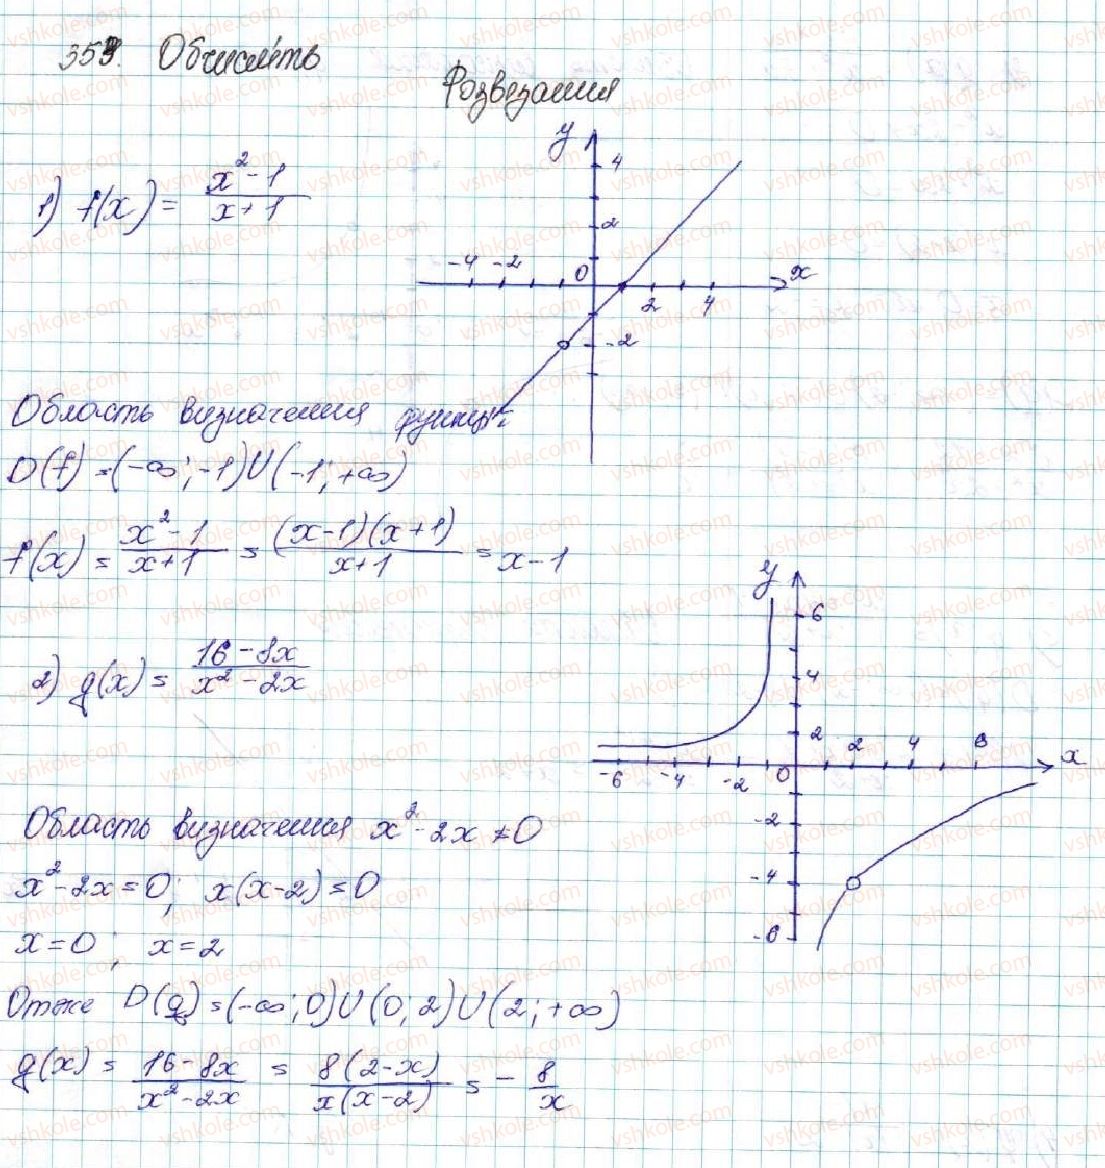 353. Обчисліть
Розвезання
1) f(x) = (x² - 1)/(x + 1)
y
4
2
-4 -2 0 2 4 x
-2
Область визначення функції
D(f) = (-∞; -1)U(-1; +∞)
f(x) = (x² - 1)/(x + 1) = ((x - 1)(x + 1))/(x + 1) = x - 1
2) g(x) = (16 - 8x)/(x² - 2x)
y
6
4
2
-6 -4 -2 0 2 4 6 x
-2
-4
-6
Область визначення x² - 2x ≠ 0
x² - 2x = 0; x(x - 2) = 0
x = 0; x = 2
Отже D(g) = (-∞; 0)U(0; 2)U(2; +∞)
g(x) = (16 - 8x)/(x² - 2x) = (8(2 - x))/(x(x - 2)) = - 8/x